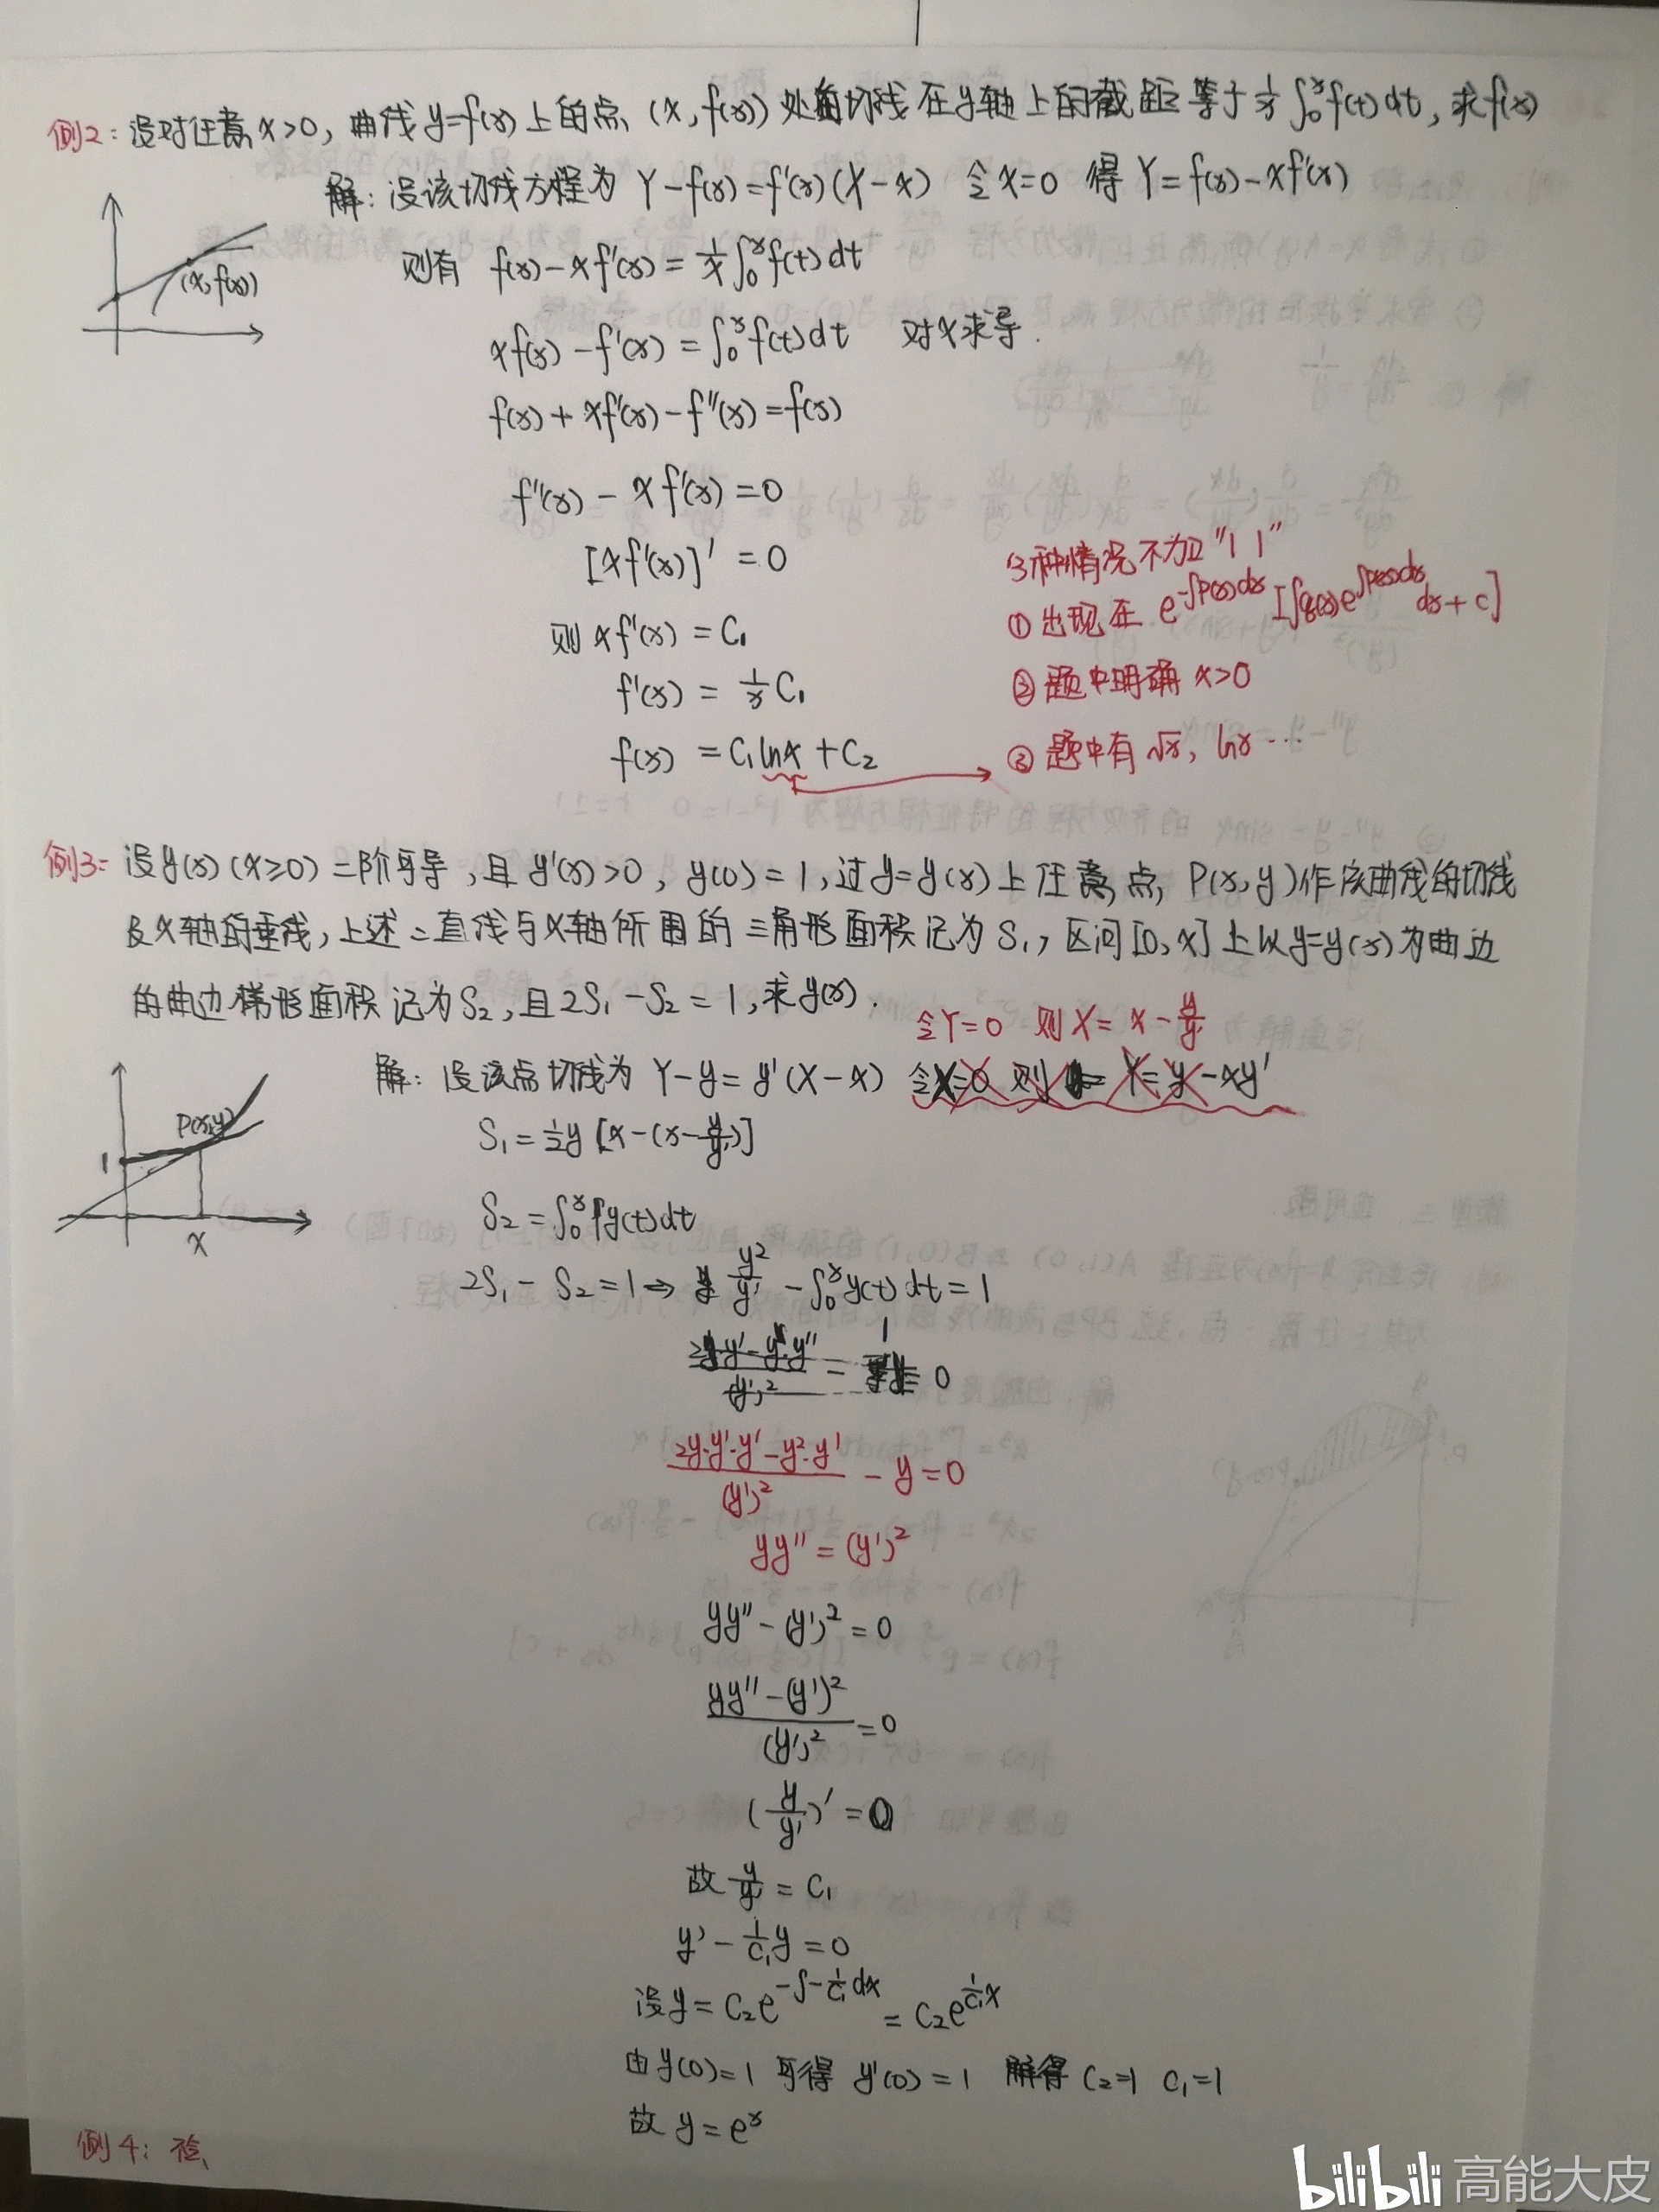 例2：设对任意x>0，曲线y=f(x)上的点(x,f(x))处的切线在y轴上的截距等于1/x ∫₀ˣf(t)dt，求f(x)
解：设该切线方程为 Y-f(x)=f'(x)(X-x) 令X=0 得 Y=f(x)-xf'(x)
(x,f(x))
则有 f(x)-xf'(x)=1/x ∫₀ˣf(t)dt
xf(x)-f'(x)=∫₀ˣf(t)dt 对x求导.
f(x)+xf'(x)-f''(x)=f(x)
f''(x)-xf'(x)=0
[xf'(x)]'=0
则xf'(x)=C₁
f'(x)=1/x C₁
f(x)=C₁lnx+C₂
3种情况不加"| |"
①出现在 e^(-∫p(x)dx)[∫q(x)e^(∫p(x)dx)dx+C]
②题中明确 x>0
③题中有√x，lnx…
例3：设y(x)(x≥0)二阶可导，且y'(x)>0，y(0)=1，过y=y(x)上任意点P(x,y)作该曲线的切线
及x轴的垂线，上述二直线与x轴所围的三角形面积记为S₁，区间[0,x]上以y=y(x)为曲边
的曲边梯形面积记为S₂，且2S₁-S₂=1，求y(x).
令Y=0 则X=x-y/y'
解：设该点切线为 Y-y=y'(X-x) 令X=0 则 Y=y-xy'
P(x,y)
1
x
S₁=½y[x-(x-y/y')]
S₂=∫₀ˣy(t)dt
2S₁-S₂=1⇒ y²/y' -∫₀ˣy(t)dt=1
(2y·y'·y'-y²·y')/(y')² -y=0
yy''=(y')²
yy''-(y')²=0
(yy''-(y')²)/(y')²=0
(y/y')'=0
故y/y'=C₁
y'-1/C₁ y=0
设y=C₂e^(-∫-1/C₁ dx)=C₂e^(1/C₁ x)
由y(0)=1 可得 y'(0)=1 解得 C₂=1 C₁=1
故 y=eˣ
例4：
bilibili 高能大皮